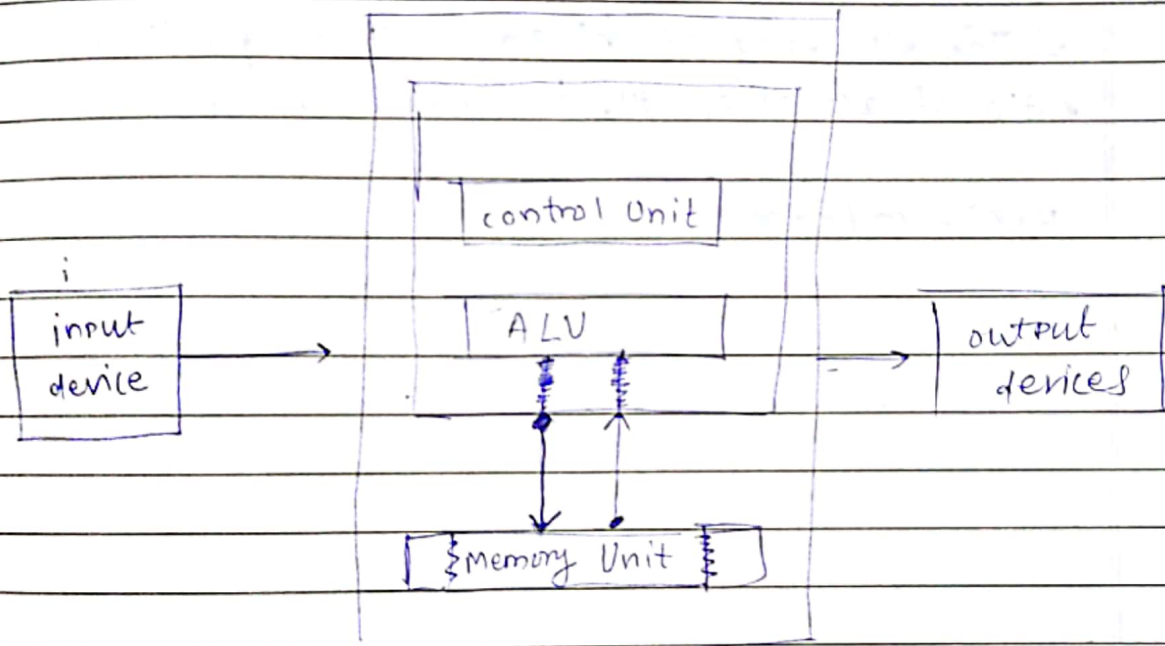 control Unit
i
input
device
ALU
output
devices
Memory Unit